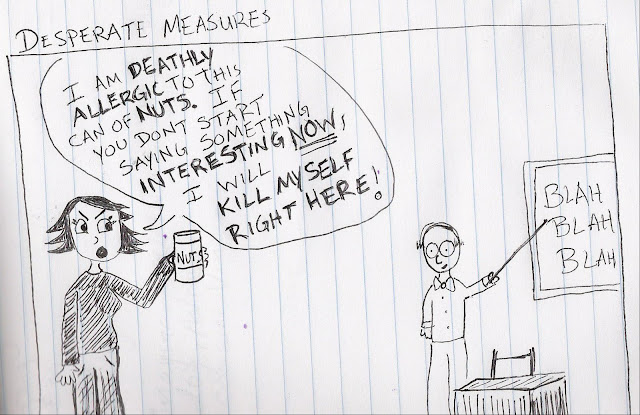 DESPERATE MEASURES
I AM DEATHLY
ALLERGIC TO THIS
CAN OF NUTS. IF
YOU DONT START
SAYING SOMETHING
INTERESTING NOW,
I WILL
KILL MYSELF
RIGHT HERE!
NUTS
BLAH
BLAH
BLAH